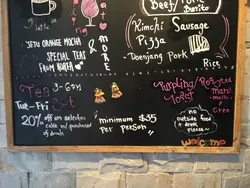 Beef/Pork
Burito
latte
Kimchi Sausage
Pizza
JEJU ORANGE MOCHA
SPECIAL TEAS
FROM KOREA
& MORE
Doenjang Pork
Rice
Tea 3-6pm
Tue-Fri
20% off on selected
with purchase
of drinks
minimum $35
per person
Roasted
Toast
no outside
food +
drink
please~
welcome